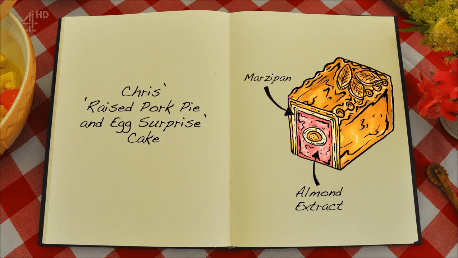 4HD
Chris'
'Raised Pork Pie
and Egg Surprise'
Cake
Marzipan
Almond
Extract